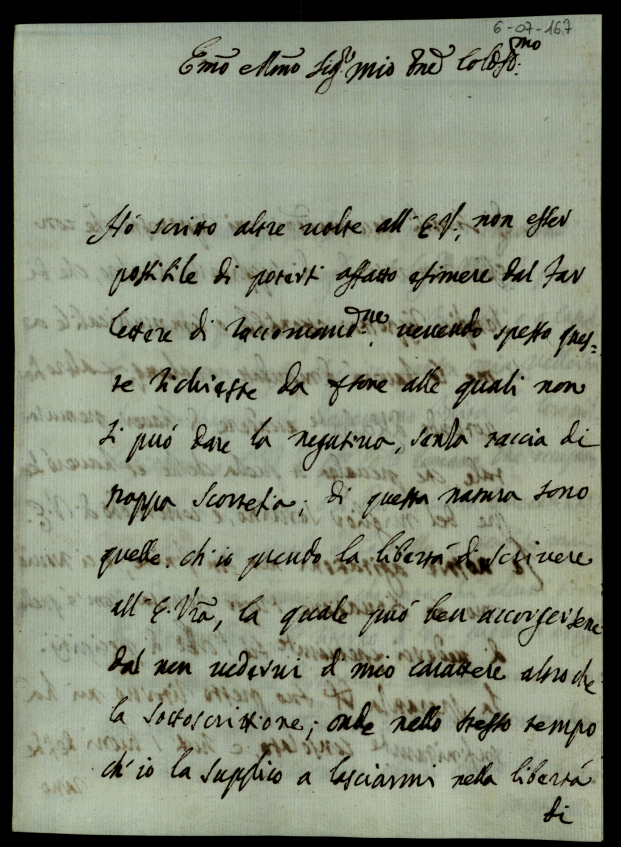 6-07-167
Emõ e Rmõ Sig.r mio Pnẽ Colẽdmo:
Hò scritto altre volte all' E.V., non esser
possibile di potersi affatto esimere dal far
lettere di raccomand.ne, venendo spesso ques=
te richieste da psone alle quali non
si può dare la negativa, senza taccia di
troppa scortesia; di questa natura sono
quelle, ch' io prendo la libertà di scrivere
all' E. Vrã, la quale può ben accorgersene
dal non vedervi di mio carattere altro che
la sottoscrittione; onde nello stesso tempo
ch' io la supplico a lasciarmi nella libertà
di